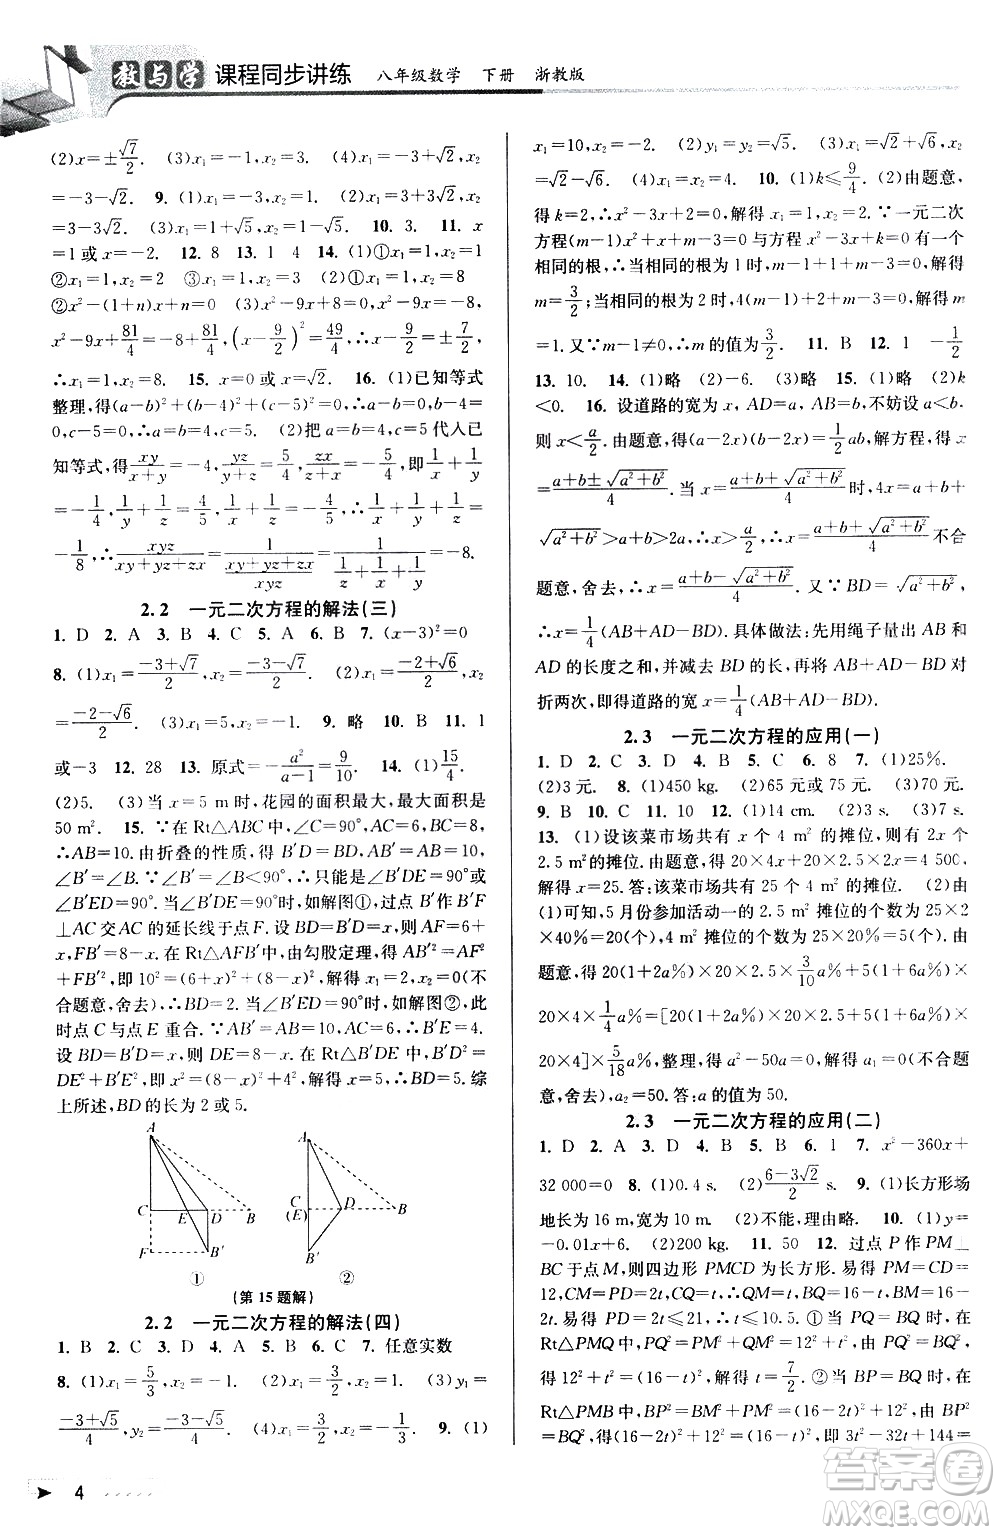 教与学 课程同步讲练 八年级数学 下册 浙教版
(2)x=±√7/2. (3)x₁=-1,x₂=3. (4)x₁=-3+√2,x₂
=-3-√2. 9. (1)x₁=-3,x₂=1. (2)x₁=3+3√2,x₂
=3-3√2. (3)x₁=1+√5,x₂=1-√5. 10. 3. 11. x
=1或x=-1 12. 8 13. 1 4 14. (1)①x₁=x₂=1
②x₁=1,x₂=2 ③x₁=1,x₂=3 (2)①x₁=1,x₂=8
②x²-(1+n)x+n=0 (3)x²-9x+8=0,x²-9x=-8,
x²-9x+81/4=-8+81/4,(x-9/2)²=49/4,∴x-9/2=±7/2.
∴x₁=1,x₂=8. 15. x=0或x=±√2. 16. (1)已知等式
整理,得(a-b)²+(b-4)²+|c-5|=0,∴a-b=0,b-4=0,
c-5=0,∴a=b=4,c=5. (2)把a=b=4,c=5代人已
知等式,得xy/(x+y)=-4,yz/(y+z)=5/4,zx/(z+x)=-5/4,即1/x+1/y
=-1/4,1/y+1/z=4/5,1/z+1/x=-4/5,∴1/x+1/y+1/z=
-1/8,∴xyz/(xy+yz+zx)=1/((xy+yz+zx)/xyz)=1/(1/x+1/y+1/z)=-8.
2.2 一元二次方程的解法(三)
1. D 2. A 3. B 4. C 5. A 6. B 7. (x-3)²=0
8. (1)x₁=(-3+√7)/2,x₂=(-3-√7)/2. (2)x₁=(-2+√6)/2,x₂
=(-2-√6)/2. (3)x₁=5,x₂=-1. 9. 略 10. B 11. 1
或-3 12. 28 13. 原式=-a²/(a-1)=9/10. 14. (1)15/4.
(2)5. (3)当x=5 m时,花园的面积最大,最大面积是
50 m². 15. ∵在Rt△ABC中,∠C=90°,AC=6,BC=8,
∴AB=10.由折叠的性质,得B′D=BD,AB′=AB=10,
∠B′=∠B. ∵∠B<90°,∴∠B′<90°.当∠B′DE=90°时,如解图①,过点B′作B′F
⊥AC交AC的延长线于点F.设BD=B′D=x,则AF=6
+x,FB′=8-x.在Rt△AFB′中,由勾股定理,得AB′²=AF²
+FB′²,即10²=(6+x)²+(8-x)²,解得x₁=2,x₂=0(不
合题意,舍去),∴BD=2.当∠B′ED=90°时,如解图②,此
时点C与点E重合. ∵AB′=AB=10,AC=6,∴B′E=4.
设BD=B′D=x,则DE=8-x.在Rt△B′DE中,B′D²=
DE²+B′E²,即x²=(8-x)²+4²,解得x=5,∴BD=5.综
上所述,BD的长为2或5.
A A
C E D B C (E) D B
F B′ B′
① ②
(第15题解)
2.2 一元二次方程的解法(四)
1. B 2. C 3. D 4. A 5. B 6. C 7. 任意实数
8. (1)x₁=5/3,x₂=-1. (2)x₁=x₂=1/4. (3)y₁=
(-3+√5)/4,y₂=(-3-√5)/4. (4)x₁=-1/3,x₂=-1/2. 9. (1)
x₁=10,x₂=-2. (2)y₁=y₂=√5. (3)x₁=√2+√6,x₂
=√2-√6. (4)x₁=x₂=4. 10. (1)k≤9/4. (2)由题意,
得k=2,∴x²-3x+2=0,解得x₁=1,x₂=2. ∵一元二次
方程(m-1)x²+x+m-3=0与方程x²-3x+k=0有一个
相同的根,∴当相同的根为1时,m-1+1+m-3=0,解得
m=3/2;当相同的根为2时,4(m-1)+2+m-3=0,解得m
=1.又∵m-1≠0,∴m的值为3/2. 11. B 12. 1 -1/2
13. 10. 14. (1)略 (2)-6. (3)2. 15. (1)略 (2)k
<0. 16. 设道路的宽为x,AD=a,AB=b,不妨设b>a,
则x<a/2.由题意,得(a-2x)(b-2x)=1/2ab,解方程,得x
=(a+b±√(a²+b²))/4.当x=(a+b+√(a²+b²))/4时,4x=a+b+
√(a²+b²)>a+b>2a,∴x>a/2,∴x=(a+b+√(a²+b²))/4不合
题意,舍去,∴x=(a+b-√(a²+b²))/4.又∵BD=√(a²+b²),
∴x=1/4(AB+AD-BD).具体做法:先用绳子量出AB和
AD的长度之和,再减去BD的长,再将AB+AD-BD对
折两次,即得道路的宽x=1/4(AB+AD-BD).
2.3 一元二次方程的应用(一)
1. D 2. C 3. D 4. B 5. C 6. 8 7. (1)25%.
(2)3元. 8. (1)450 kg. (2)65元或75元. (3)70元.
9. B 10. C 11. 10 12. (1)14 cm. (2)3 s. (3)7 s.
13. (1)设该菜市场共有x个4 m²的摊位,则有2x个
2.5 m²的摊位.由题意,得20×4x+20×2.5×2x=4500,
解得x=25.答:该菜市场共有25个4 m²的摊位. (2)由
(1)可知,5月份参加活动一的2.5 m²摊位的个数为25×2
×40%=20(个),4 m²摊位的个数为25×20%=5(个).由
题意,得20(1+2a%)×20×2.5×3/10a%+5(1+6a%)×
20×4×1/4a%=[20(1+2a%)×20×2.5+5(1+6a%)×
20×4]×5/18a%,整理,得a²-50a=0,解得a₁=0(不合题
意,舍去),a₂=50.答:a的值为50.
2.3 一元二次方程的应用(二)
1. D 2. A 3. D 4. B 5. B 6. 1 7. x²-360x+
32 000=0 8. (1)0.4 s. (2)(6-3√2)/2 s. 9. (1)长方形场
地长为16 m,宽为10 m. (2)不能,理由略. 10. (1)y=
-0.01x+6. (2)200 kg. 11. 50 12. 过点P作PM⊥
BC于点M,则四边形PMCD为长方形.易得PM=CD=
12.易得PD=2t≤21,CQ=t≤16,∴BQ=16-t,BM=16-
2t,∴MQ=PD-CQ=2t-t=t. ①当PQ=BQ时,在
Rt△PMQ中,PQ²=PM²+QM²=12²+t².由PQ²=BQ²,
得12²+t²=(16-t)²,解得t=7/2. ②当BP=BQ时,在
Rt△PMB中,BP²=BM²+PM²=(16-2t)²+12².由BP²=
BQ²,得(16-2t)²+12²=(16-t)²,即3t²-32t+144=
4
答案圈
MXQE.COM